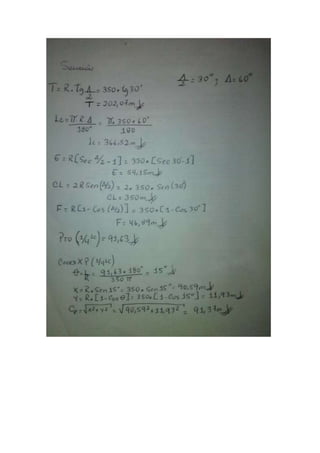 Solución
Δ/2 = 30°; Δ = 60°
T = R * Tg Δ/2 = 350 * tg 30°
T = 202,07m
Lc = π R Δ / 180° = π * 350 * 60° / 180
Lc = 366.52 m
E = R [Sec Δ/2 - 1] = 350 * [Sec 30 - 1]
E = 54,15m
CL = 2R Sen (Δ/2) = 2 * 350 * Sen (30)
CL = 350m
F = R [1 - Cos (Δ/2)] = 350 * [1 - Cos 30°]
F = 46,89m
Pto (1/4 Lc) = 91,63
P (1/4 Lc)
θ = = 91,63 * 180° / 350 π = 15°
X = R * Sen 15° = 350 * Sen 15° = 90,59m
Y = R * [1 - Cos θ] = 350 * [1 - Cos 15°] = 11,93m
= √x² + y² = √90,59² + 11,93² = 91,37m